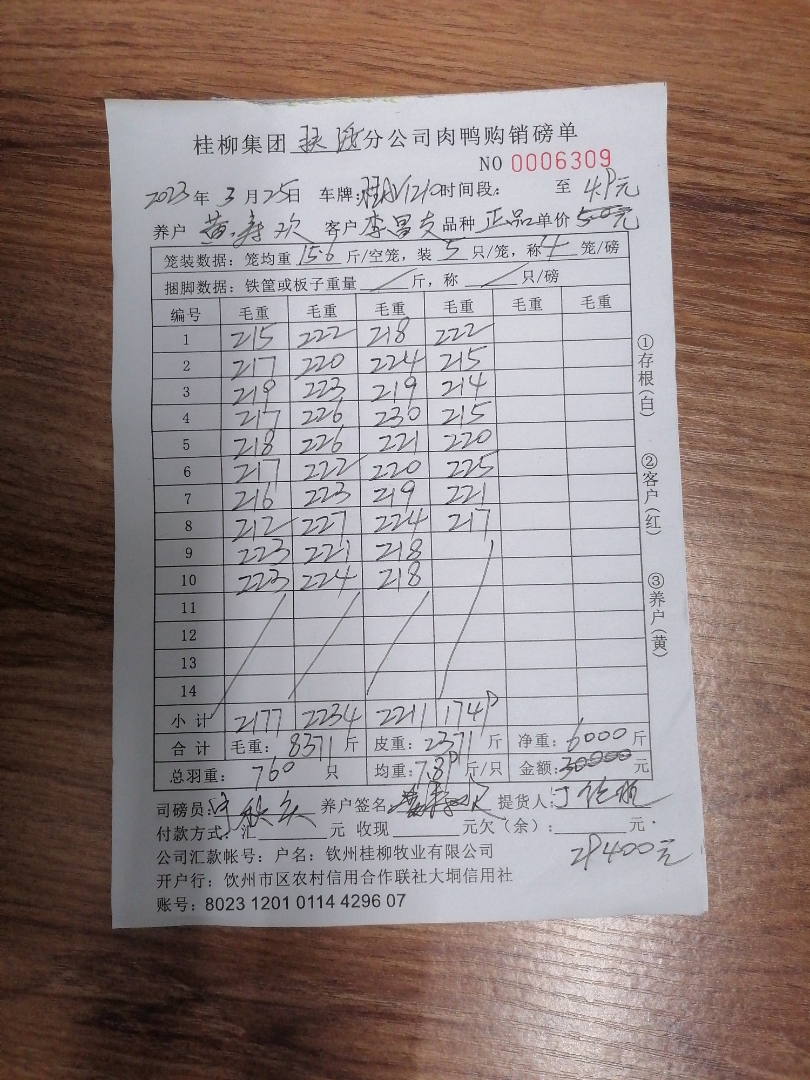 桂柳集团 分公司肉鸭购销磅单
NO 0006309
2023年3月25日 车牌:桂AV1210时间段: 至 4.9元
养户 黄寿欢 客户 李昌 品种 正品 单价 5.0元
笼装数据: 笼均重 15.6 斤/空笼, 装 5 只/笼, 称 4 笼/磅
捆脚数据: 铁筐或板子重量 / 斤, 称 / 只/磅
编号 毛重 毛重 毛重 毛重 毛重 毛重
1 215 222 218 222
2 217 220 224 215
3 219 223 219 214
4 217 226 230 215
5 218 226 221 220
6 217 222 220 225
7 216 223 219 221
8 212 227 224 217
9 223 221 218
10 223 224 218
11
12
13
14
小计 2177 2234 2211 1749
合计 毛重: 8371 斤 皮重: 2371 斤 净重: 6000 斤
总羽重: 760 只 均重: 7.89 斤/只 金额: 30000 元
司磅员: 养户签名: 提货人:
付款方式: 汇 元 收现 元欠(余): 元.
29400元
公司汇款帐号: 户名: 钦州桂柳牧业有限公司
开户行: 饮州市区农村信用合作联社大垌信用社
账号: 8023 1201 0114 4296 07
①存根(白)
②客户(红)
③养户(黄)